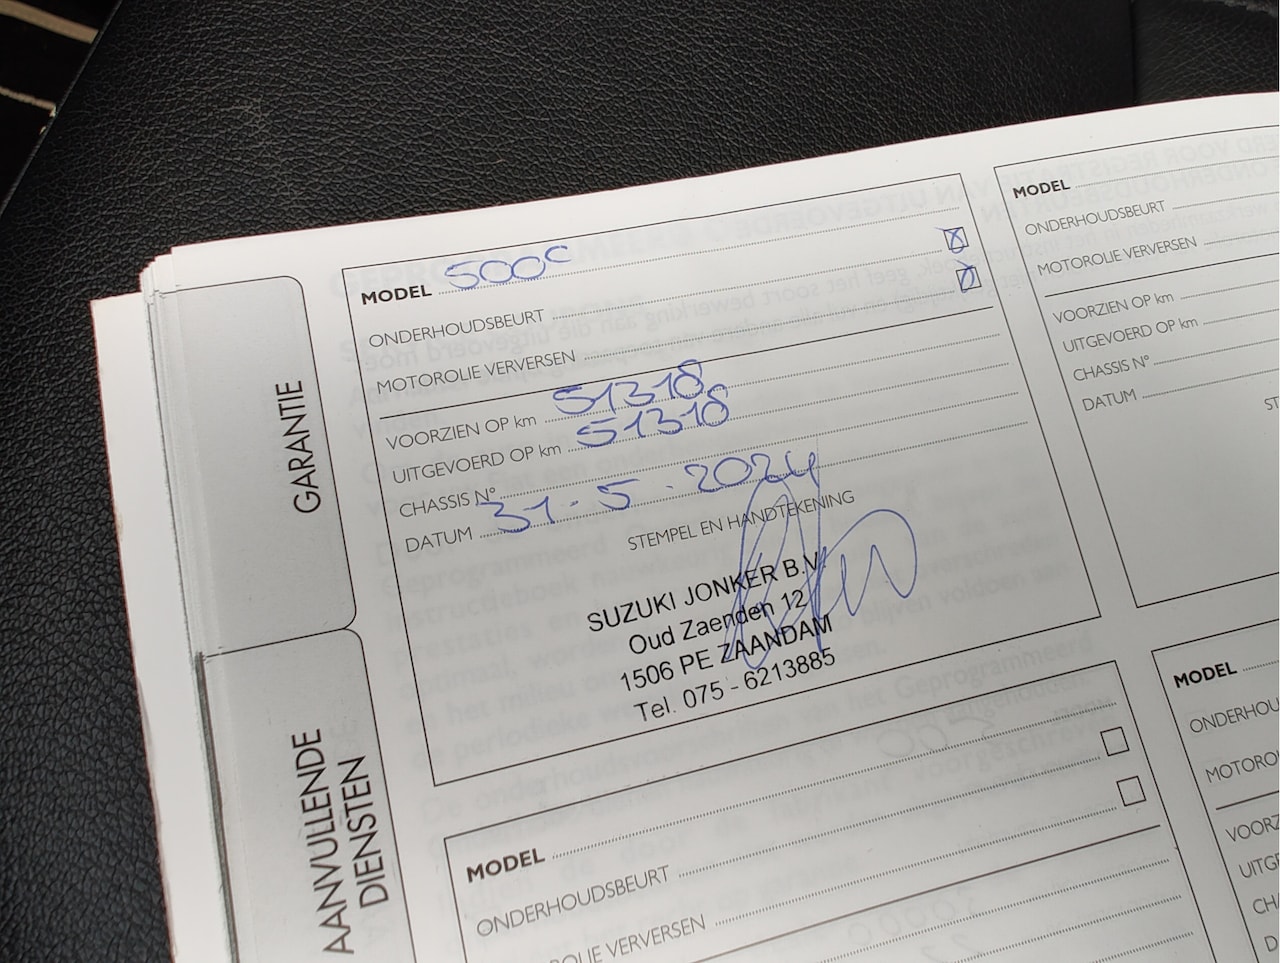 GARANTIE
AANVULLENDE
DIENSTEN
MODEL 500C
ONDERHOUDSBEURT
MOTOROLIE VERVERSEN
VOORZIEN OP km 51318
UITGEVOERD OP km 51318
CHASSIS N°
DATUM 31-5-2024
STEMPEL EN HANDTEKENING
SUZUKI JONKER B.V.
Oud Zaenden 12
1506 PE ZAANDAM
Tel. 075 - 6213885
MODEL
ONDERHOUDSBEURT
MOTOROLIE VERVERSEN
VOORZIEN OP km
UITGEVOERD OP km
CHASSIS N°
DATUM
ST
MODEL
ONDERHOUDSBEURT
OLIE VERVERSEN
MODEL
ONDERHOU
MOTORO
VOORZ
UITGE
CH
D